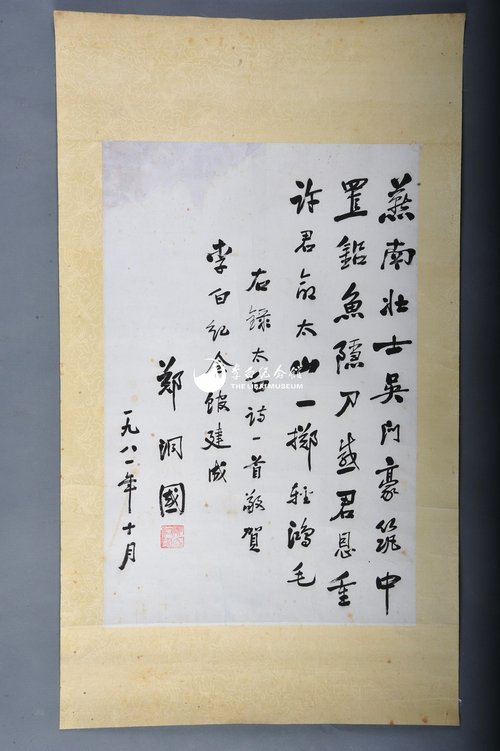 燕南壮士吴门豪筑中
置鉛魚隱刀感君恩重
许君命太山一掷轻鸿毛
右録太白诗一首敬贺
李白纪念馆建成
郑洞國
一九八一年十月
李白纪念馆
THE LIBAI MUSEUM